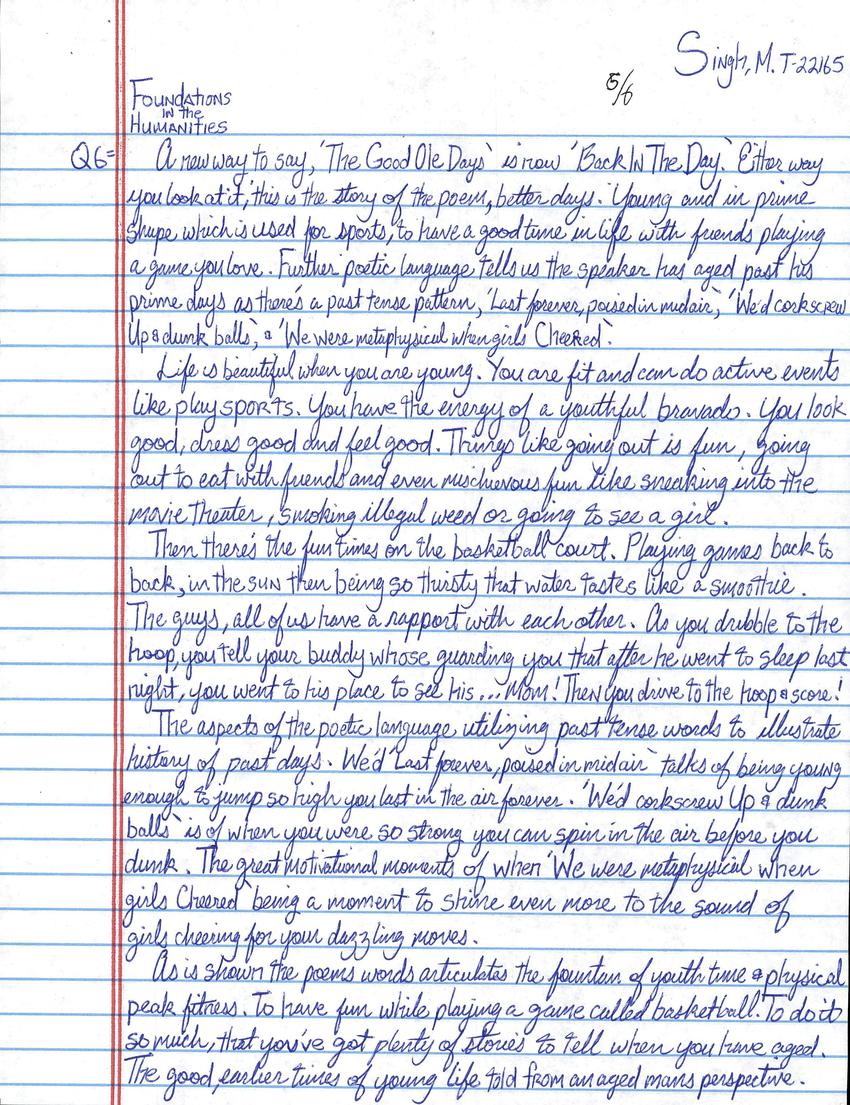 Singh, M. T-22165
5/6
Foundations
in the
Humanities
Q6= A new way to say, 'The Good Ole Days` is now 'Back In The Day.` Either way
you look at it, this is the story of the poem, better days. Young and in prime
shape which is used for sports, to have a good time in life with friends playing
a game you love. Further poetic language tells us the speaker has aged past his
prime days as there's a past tense pattern, 'Last forever, poised in midair,` 'We'd corkscrew
Up & dunk balls`, & 'We were metaphysical when girls Cheered`.
Life is beautiful when you are young. You are fit and can do active events
like play sports. You have the energy of a youthful bravado. You look
good, dress good and feel good. Things like going out is fun, going
out to eat with friends and even mischievous fun like sneaking into the
movie Theater, smoking illegal weed or going to see a girl.
Then there's the fun times on the basketball court. Playing games back to
back, in the sun then being so thirsty that water tastes like a smoothie.
The guys, all of us have a rapport with each other. As you dribble to the
hoop, you tell your buddy whose guarding you that after he went to sleep last
night, you went to his place to see his... Mom! Then you drive to the hoop & score!
The aspects of the poetic language utilizing past tense words to illustrate
history of past days. We'd 'Last forever, poised in midair` talks of being young
enough to jump so high you last in the air forever. 'We'd corkscrew Up & dunk
balls` is of when you were so strong you can spin in the air before you
dunk. The great motivational moments of when 'We were metaphysical when
girls Cheered` being a moment to shine even more to the sound of
girls cheering for your dazzling moves.
As is shown the poems words articulates the fountain of youth time & physical
peak fitness. To have fun while playing a game called basketball. To do it
so much, that you've got plenty of stories to tell when you have aged.
The good, earlier times of young life told from an aged mans perspective.